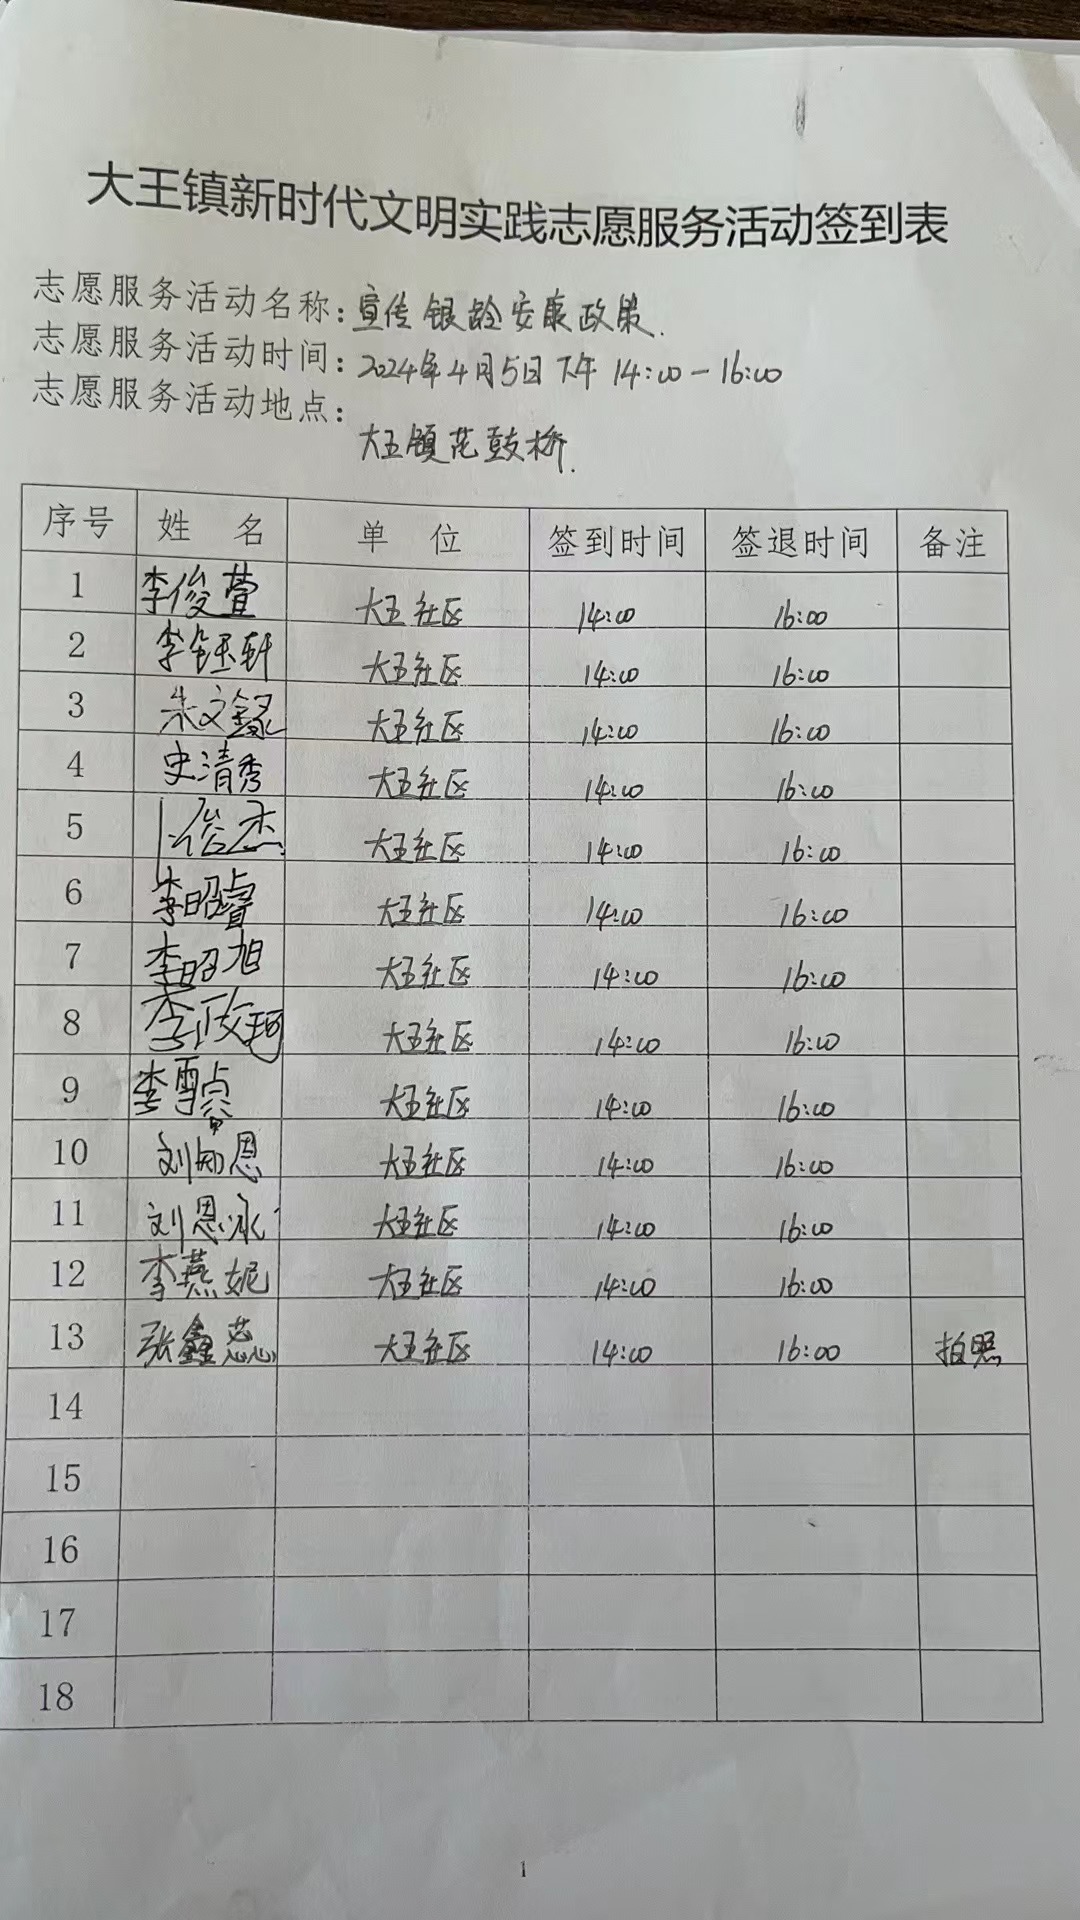 大王镇新时代文明实践志愿服务活动签到表
志愿服务活动名称：宣传银龄安康政策.
志愿服务活动时间：2024年4月5日下午 14:00-16:00
志愿服务活动地点：大王镇花鼓桥.
序号 姓 名 单 位 签到时间 签退时间 备注
1 李俊萱 大王社区 14:00 16:00
2 李钰轩 大王社区 14:00 16:00
3 朱文 大王社区 14:00 16:00
4 史清秀 大王社区 14:00 16:00
5 大王社区 14:00 16:00
6 李昭睿 大王社区 14:00 16:00
7 李昭旭 大王社区 14:00 16:00
8 李政珂 大王社区 14:00 16:00
9 李雪 大王社区 14:00 16:00
10 刘知恩 大王社区 14:00 16:00
11 刘恩冰 大王社区 14:00 16:00
12 李燕妮 大王社区 14:00 16:00
13 张鑫蕊 大王社区 14:00 16:00 拍照
14
15
16
17
18
1